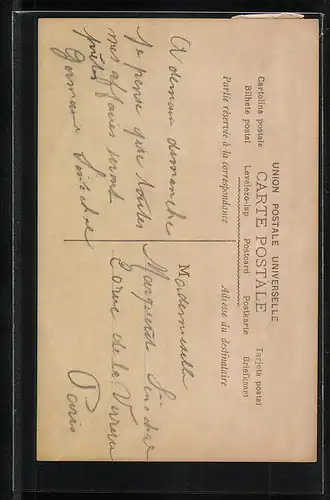 UNION POSTALE UNIVERSELLE
CARTE POSTALE
Cartolina postale Tarjeta postal
Bilhete postal Levelezo-lap Postcard Postkarte Briefkaart
Partie réservée à la correspondance
Adresse du destinataire
A demain dimanche
Je pense que toutes
mes affaires seront
prêtes
Germaine
Mademoiselle
Marguerite
rue de la Verrerie
Paris